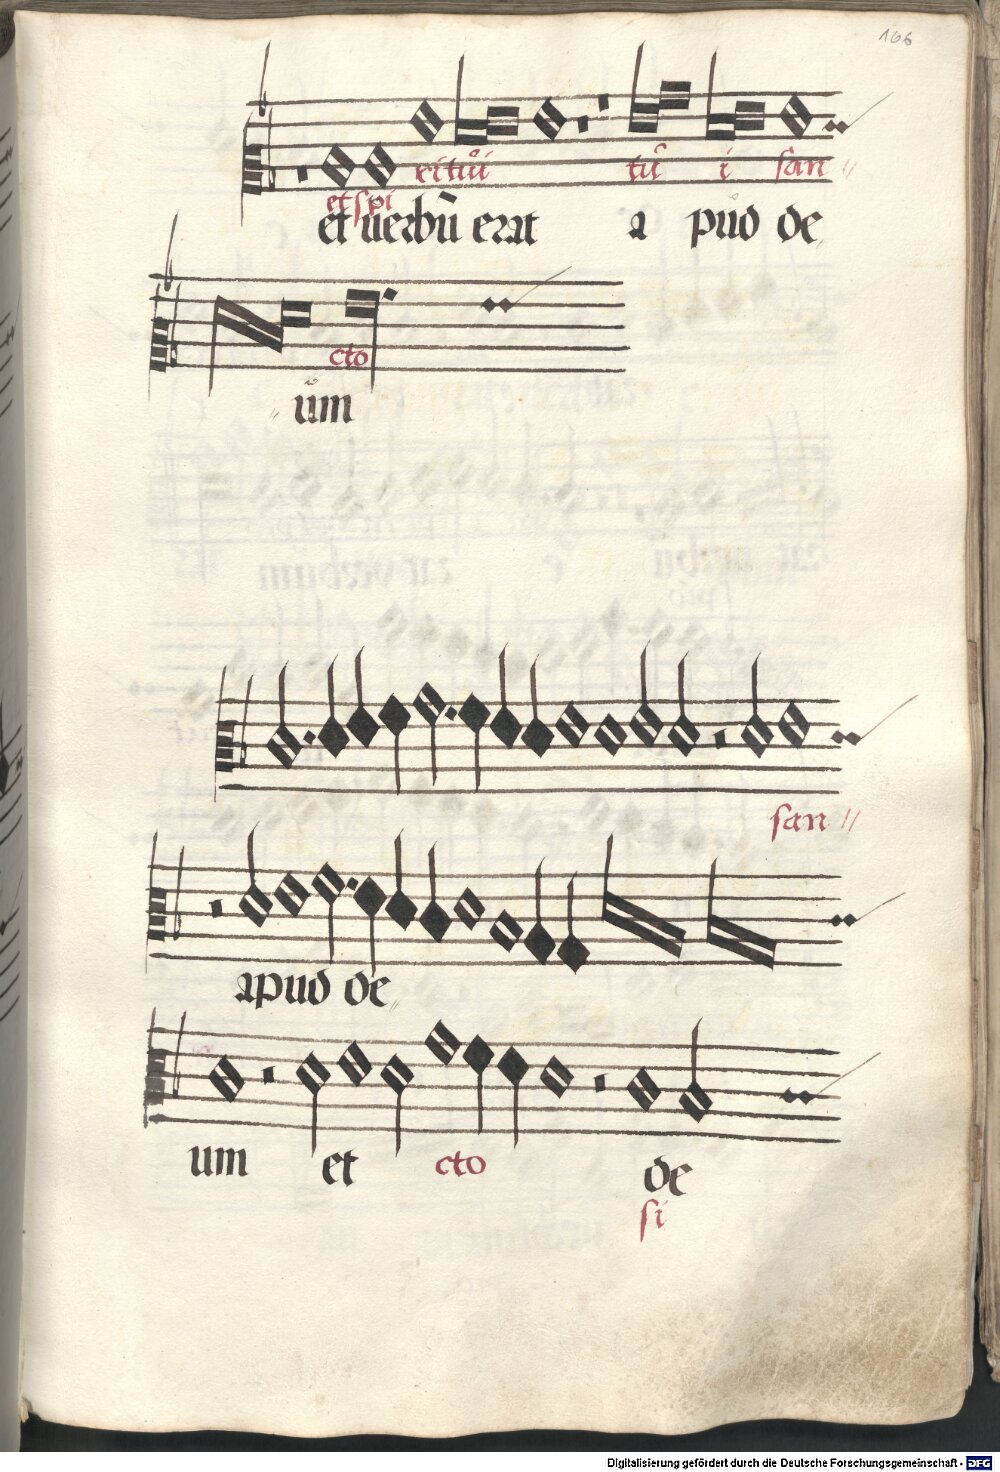 166
ritũi tũ i san //
et spi
et uerbũ erat a pud de //
cto
// um
san //
apud de //
um et cto de
si
Digitalisierung gefördert durch die Deutsche Forschungsgemeinschaft - DFG